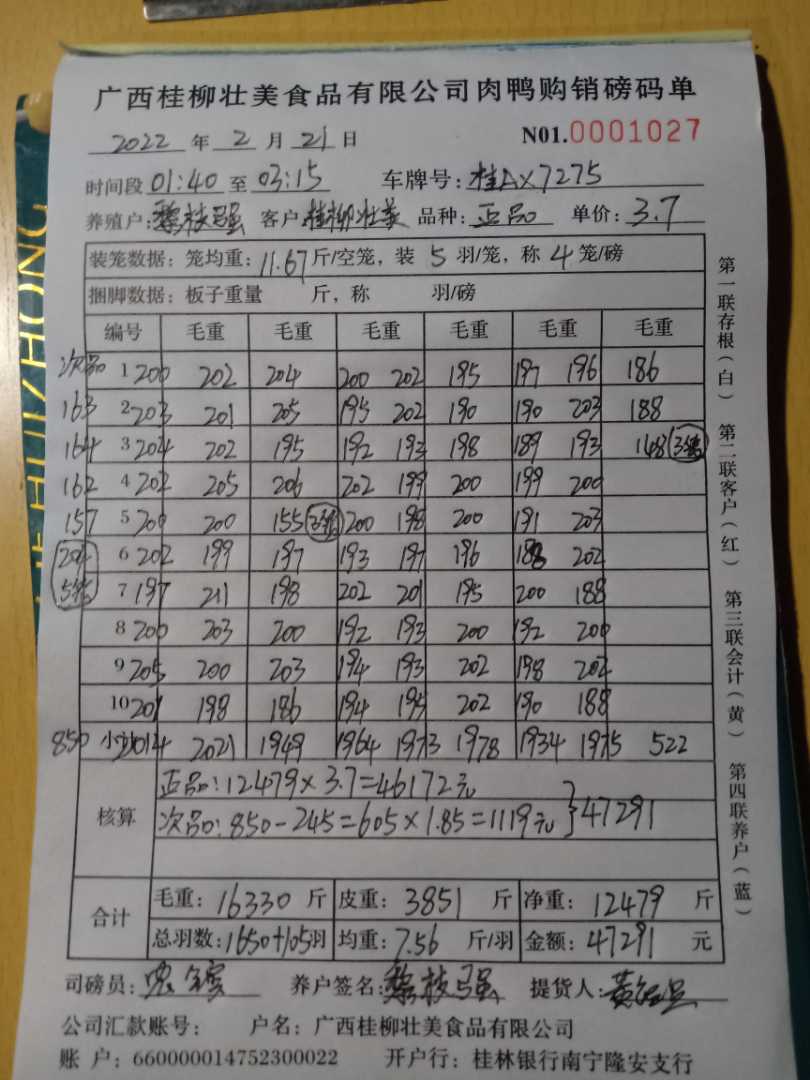 广西桂柳壮美食品有限公司肉鸭购销磅码单
2022 年 2 月 21 日 N01.0001027
时间段 01:40 至 03:15 车牌号:桂AX7275
养殖户:黎枝强 客户:桂柳壮美 品种:正品 单价:3.7
装笼数据:笼均重:11.67斤/空笼,装 5 羽/笼,称 4 笼/磅
捆脚数据:板子重量 斤,称 羽/磅
编号 毛重 毛重 毛重 毛重 毛重 毛重
次品 1 200 202 204 200 202 195 197 196 186
163 2 203 201 205 195 202 190 190 203 188
164 3 204 202 195 192 193 198 189 193 148 3笼
162 4 202 205 206 202 199 200 199 200
157 5 200 200 155 3笼 200 198 200 191 203
204 6 202 199 197 193 197 196 188 202
5笼 7 197 211 198 202 201 195 200 188
8 200 203 200 192 193 200 192 200
9 205 200 203 194 193 202 198 202
10 201 198 186 194 195 202 190 188
850 小计 2014 2021 1949 1964 1973 1978 1934 1975 522
核算
正品:12479×3.7=46172元
次品:850-245=605×1.85=1119元 }47291
合计
毛重:16330 斤 皮重:3851 斤 净重:12479 斤
总羽数:1650+105羽 均重:7.56 斤/羽 金额:47291 元
司磅员: 养户签名:黎枝强 提货人:黄
公司汇款账号: 户名:广西桂柳壮美食品有限公司
账 户:660000014752300022 开户行:桂林银行南宁隆安支行
第一联存根(白) 第二联客户(红) 第三联会计(黄) 第四联养户(蓝)
HUIZHONG